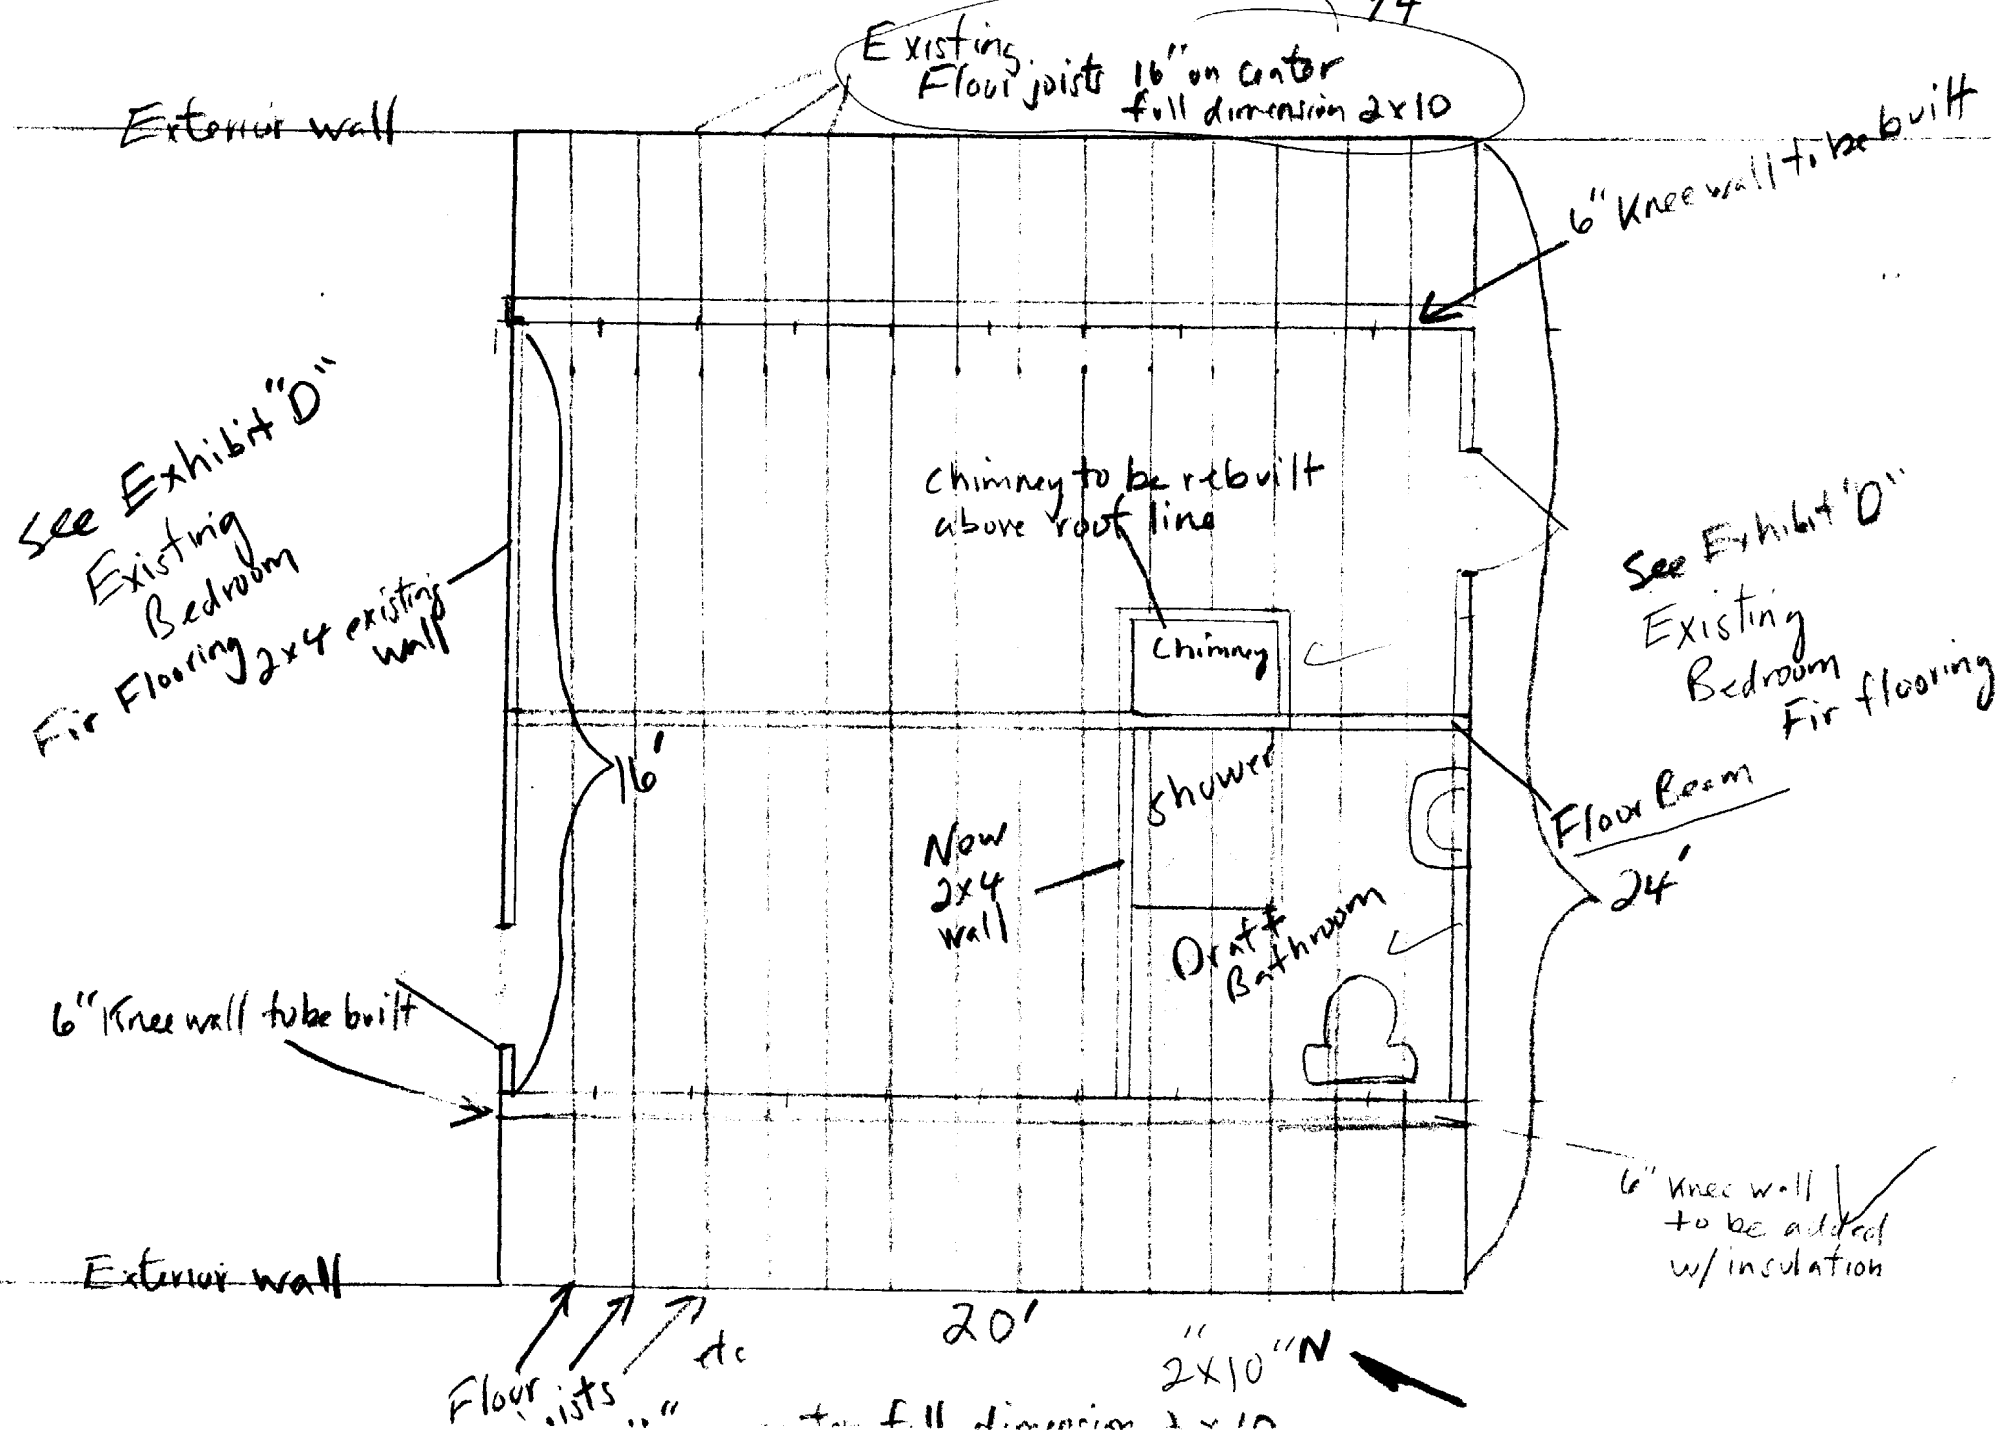 14
Existing
Floor joists 16" on center
full dimension 2x10
Exterior wall
6" Knee wall to be built
See Exhibit "D"
Existing
Bedroom
Fir Flooring
2x4 existing
wall
Chimney to be rebuilt
above roof line
Chimney
See Exhibit "D"
Existing
Bedroom
Fir flooring
16'
Shower
Floor Beam
New
2x4
wall
24'
Draft
Bathroom
6" Knee wall to be built
6" Knee wall
to be added
w/ insulation
Exterior wall
20'
etc
2x10"
N
Floor
joists
full dimension 2x10